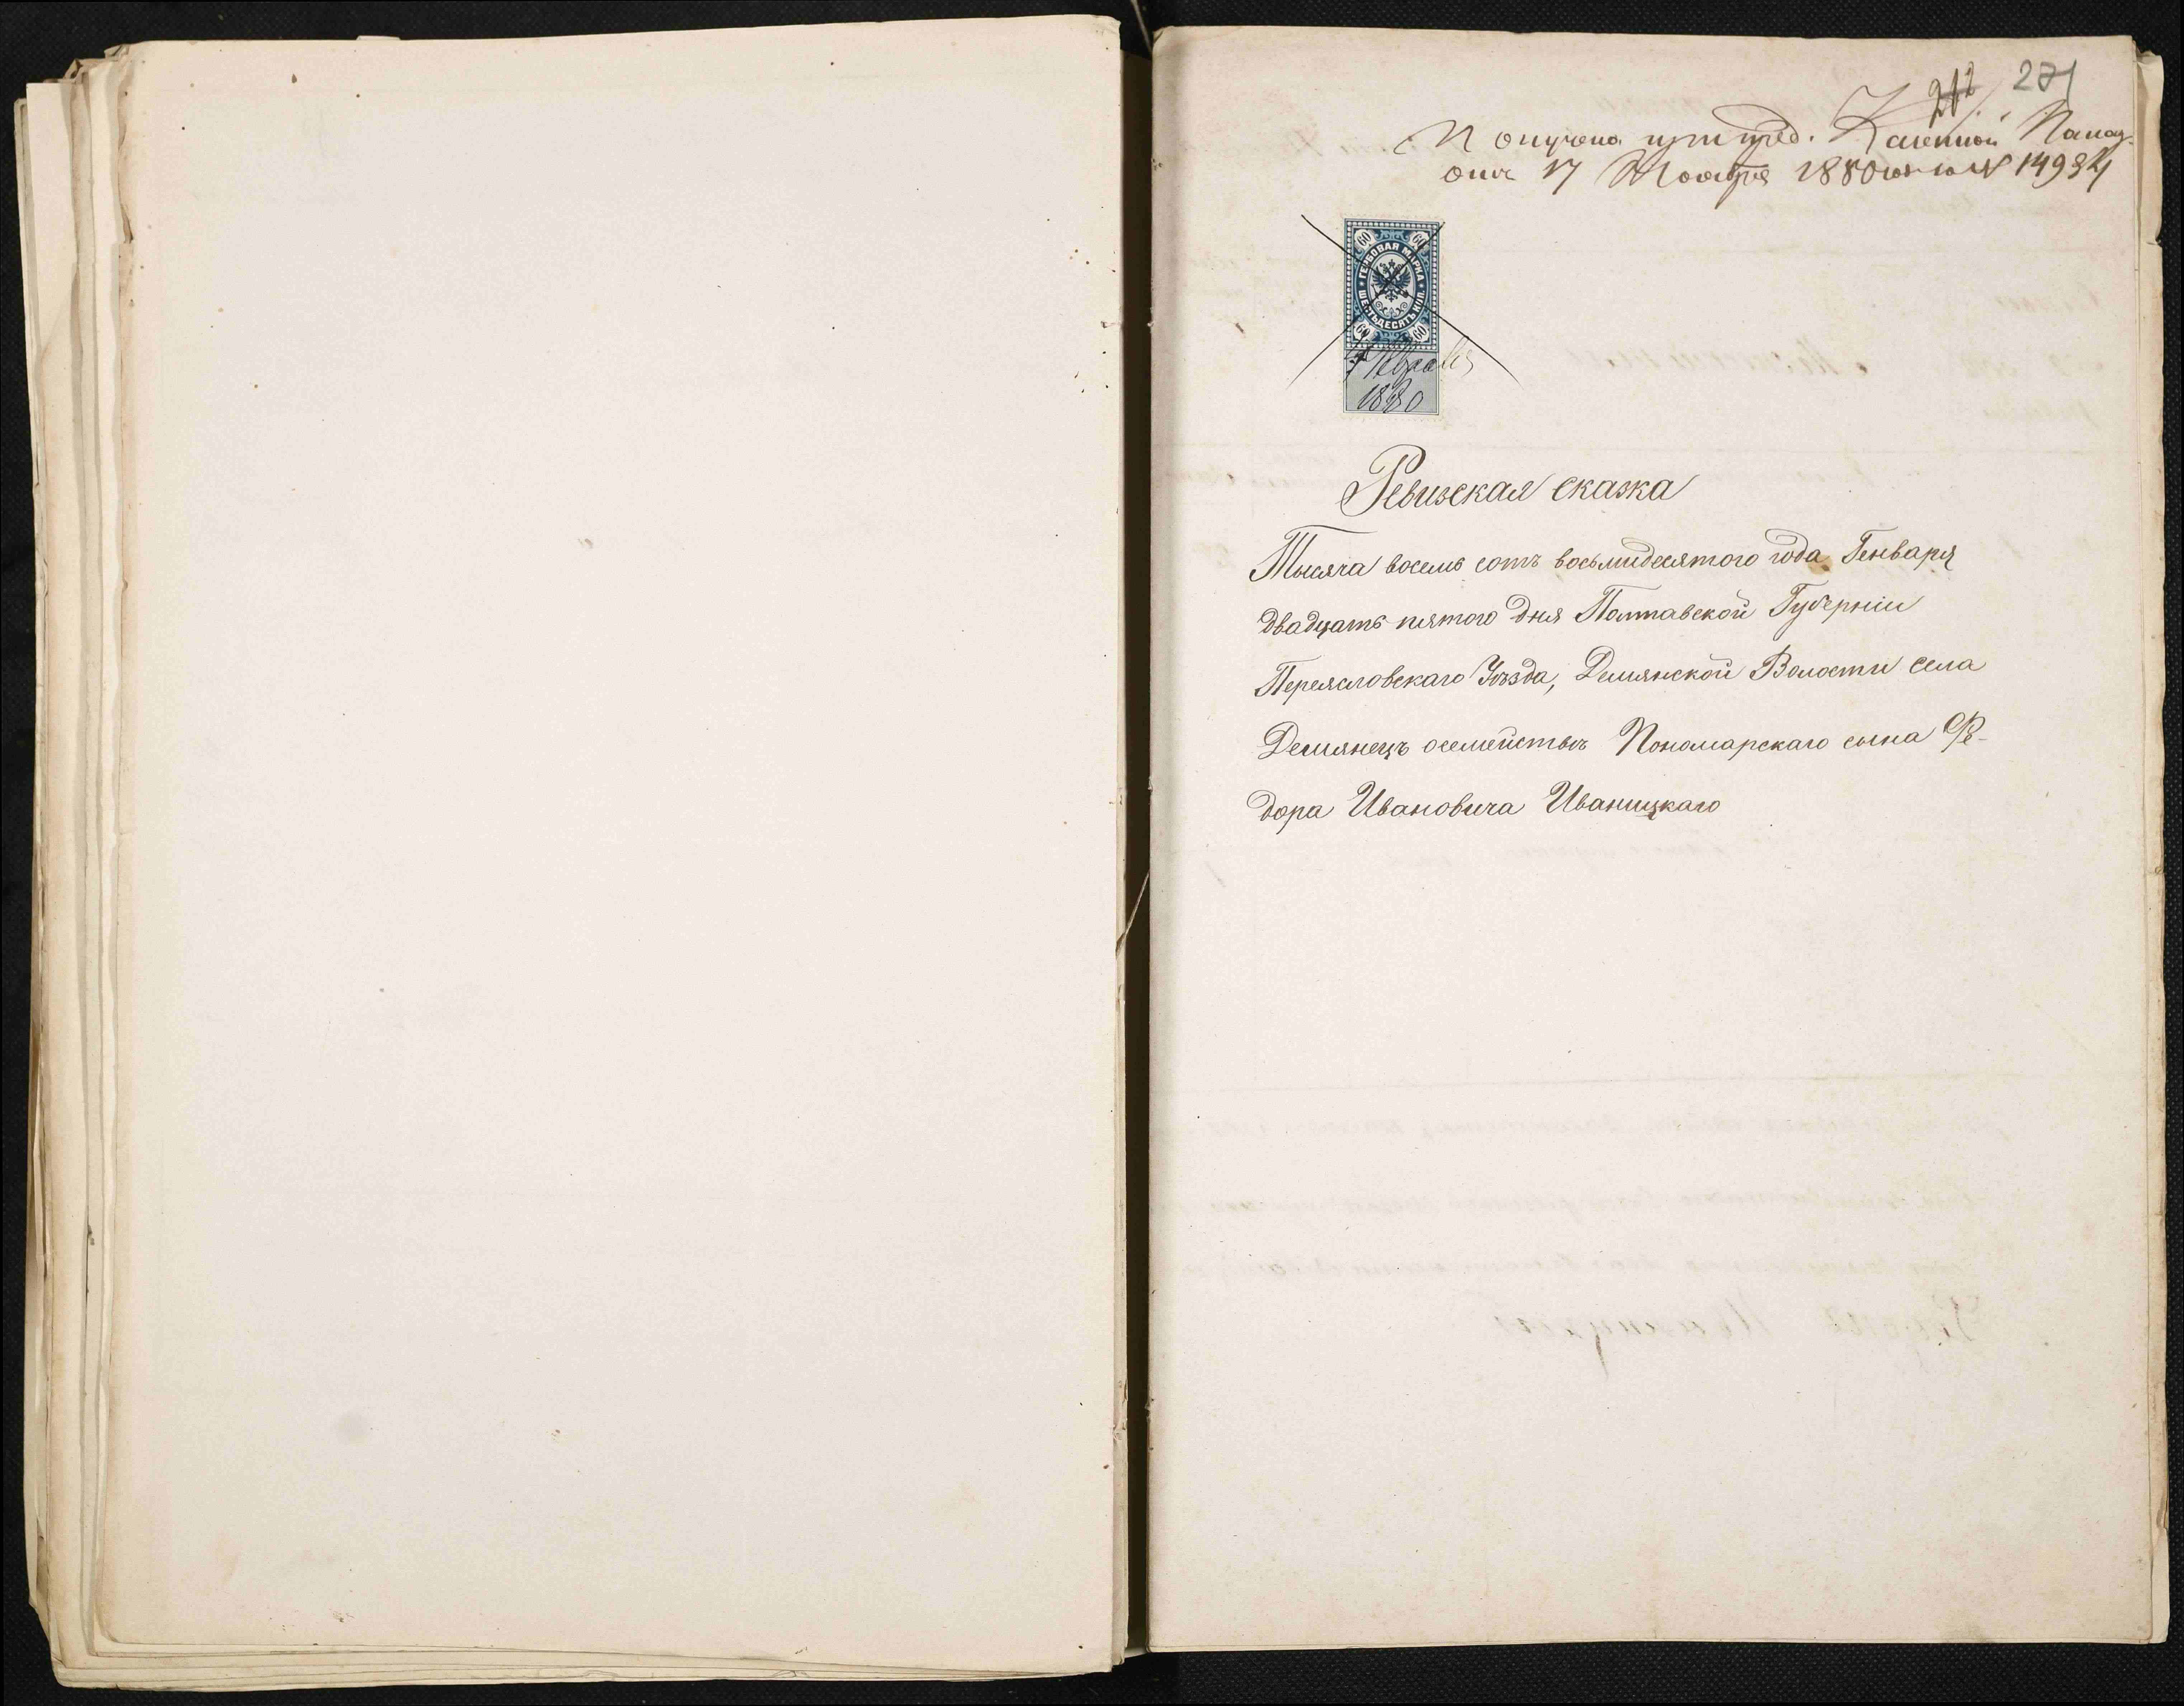 212 271
Получена при пред. Казенной Палат.
отъ 17 Ноября 1880 года за № 14934
60 60
ГЕРБОВАЯ МАРКА
ШЕСТЬДЕСЯТЪ КОП.
60 60
7 Февраля
1880
Ревизская сказка
Тысяча восемь сотъ восьмидесятого года Генваря
двадцать пятого дня Полтавской Губерніи
Переясловскаго Уѣзда, Демянской Волости села
Демянецъ осемействѣ Пономарскаго сына Фе-
дора Ивановича Иваницкаго